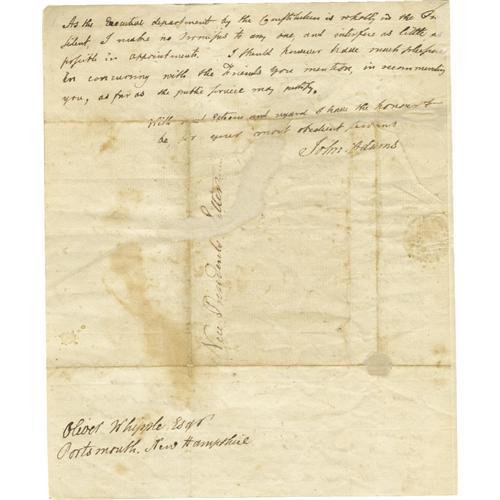 As the Executive department by the Constitution is wholly in the Pre
sident, I make no Promises to any one, and interfere as little as
possible in appointments. I should however have much pleasure
in concurring with the Friends you mention, in recommending
you, as far as the public service may justify.
With great Esteem and regard I have the honour to
be, Sir your most obedient servant
John Adams
Vice Presidents Letter
Oliver Whipple Esqr
Portsmouth. New Hampshire